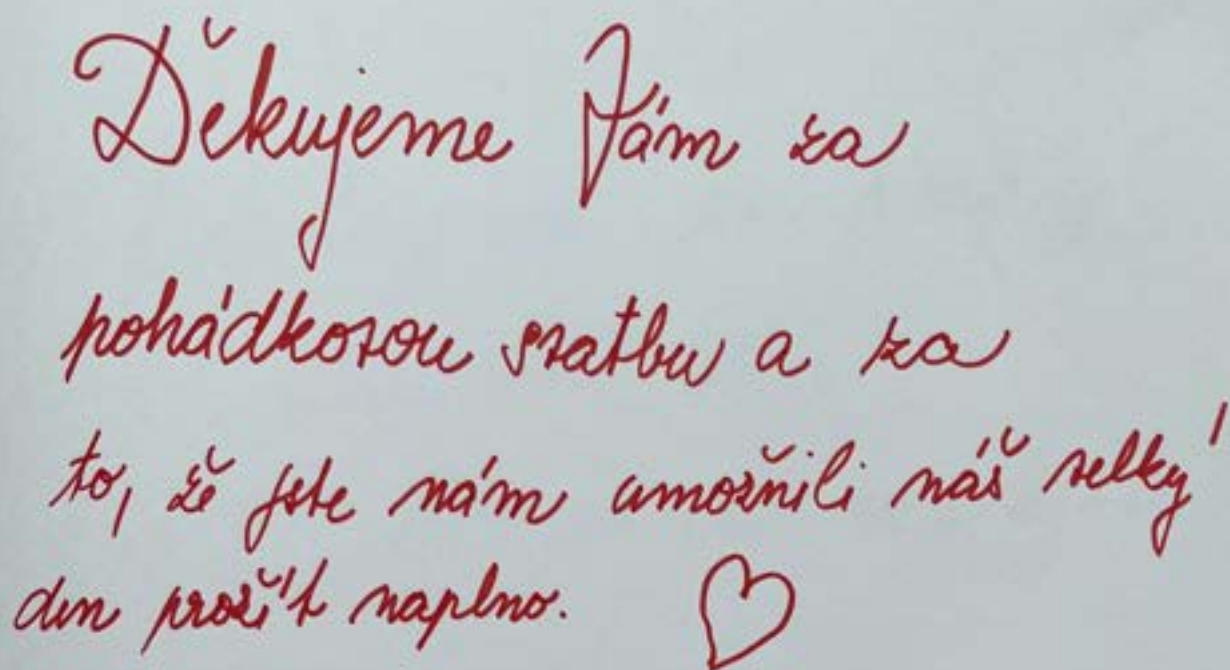 Děkujeme Vám za
pohádkovou svatbu a za
to, že jste nám umožnili náš velký
den prožít naplno. ♡